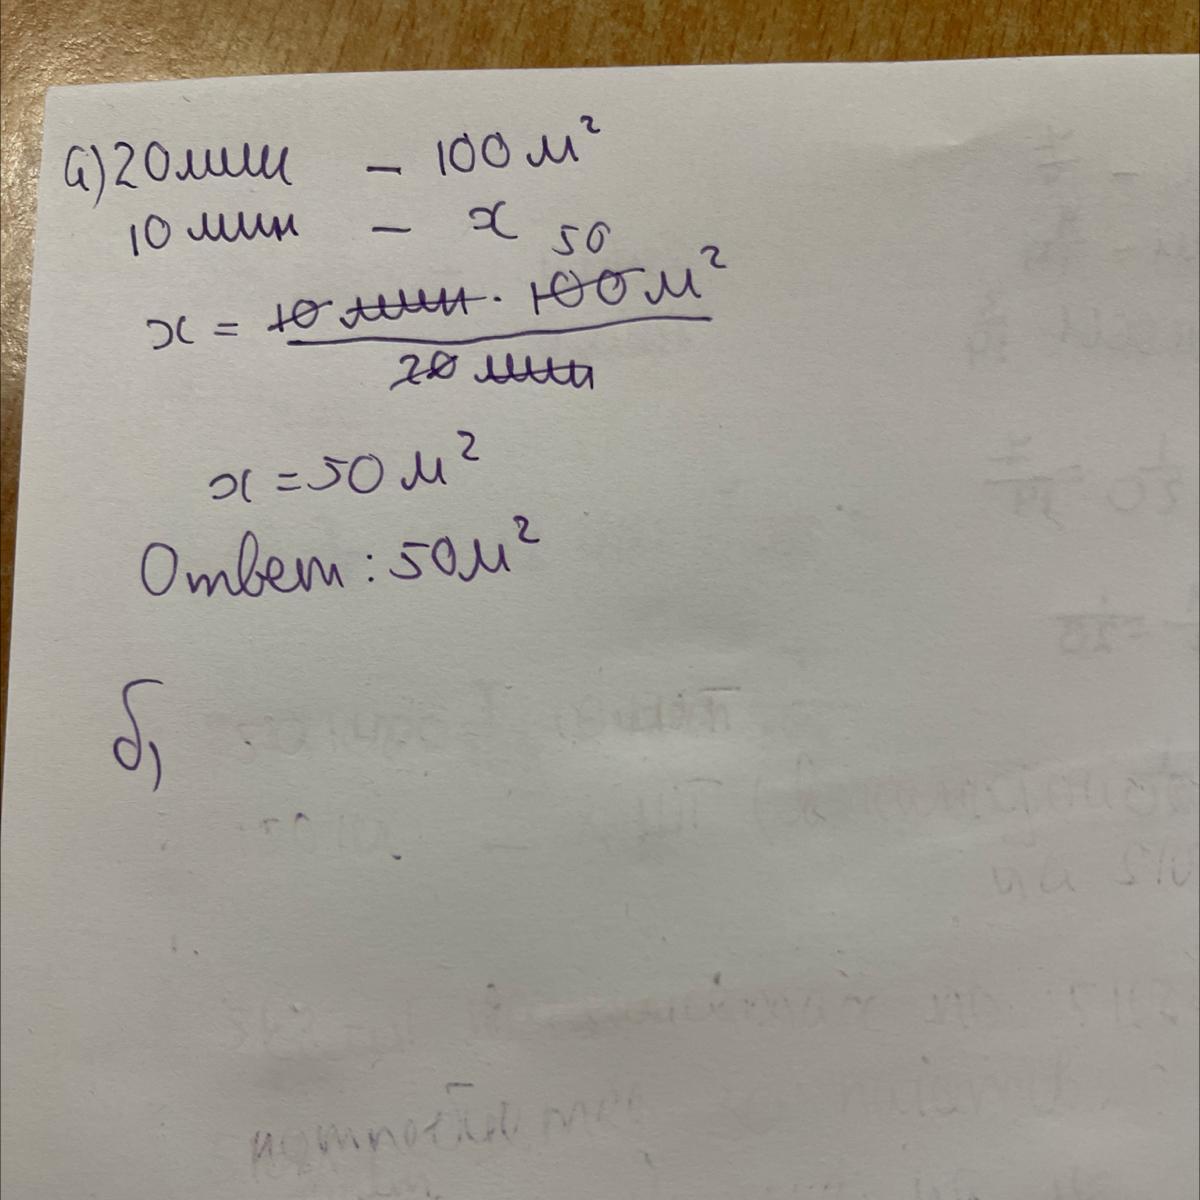 а) 20 мин – 100 м²
10 мин – x
50
x = 10 мин · 100 м²
20 мин
x = 50 м²
Ответ: 50 м²
б)